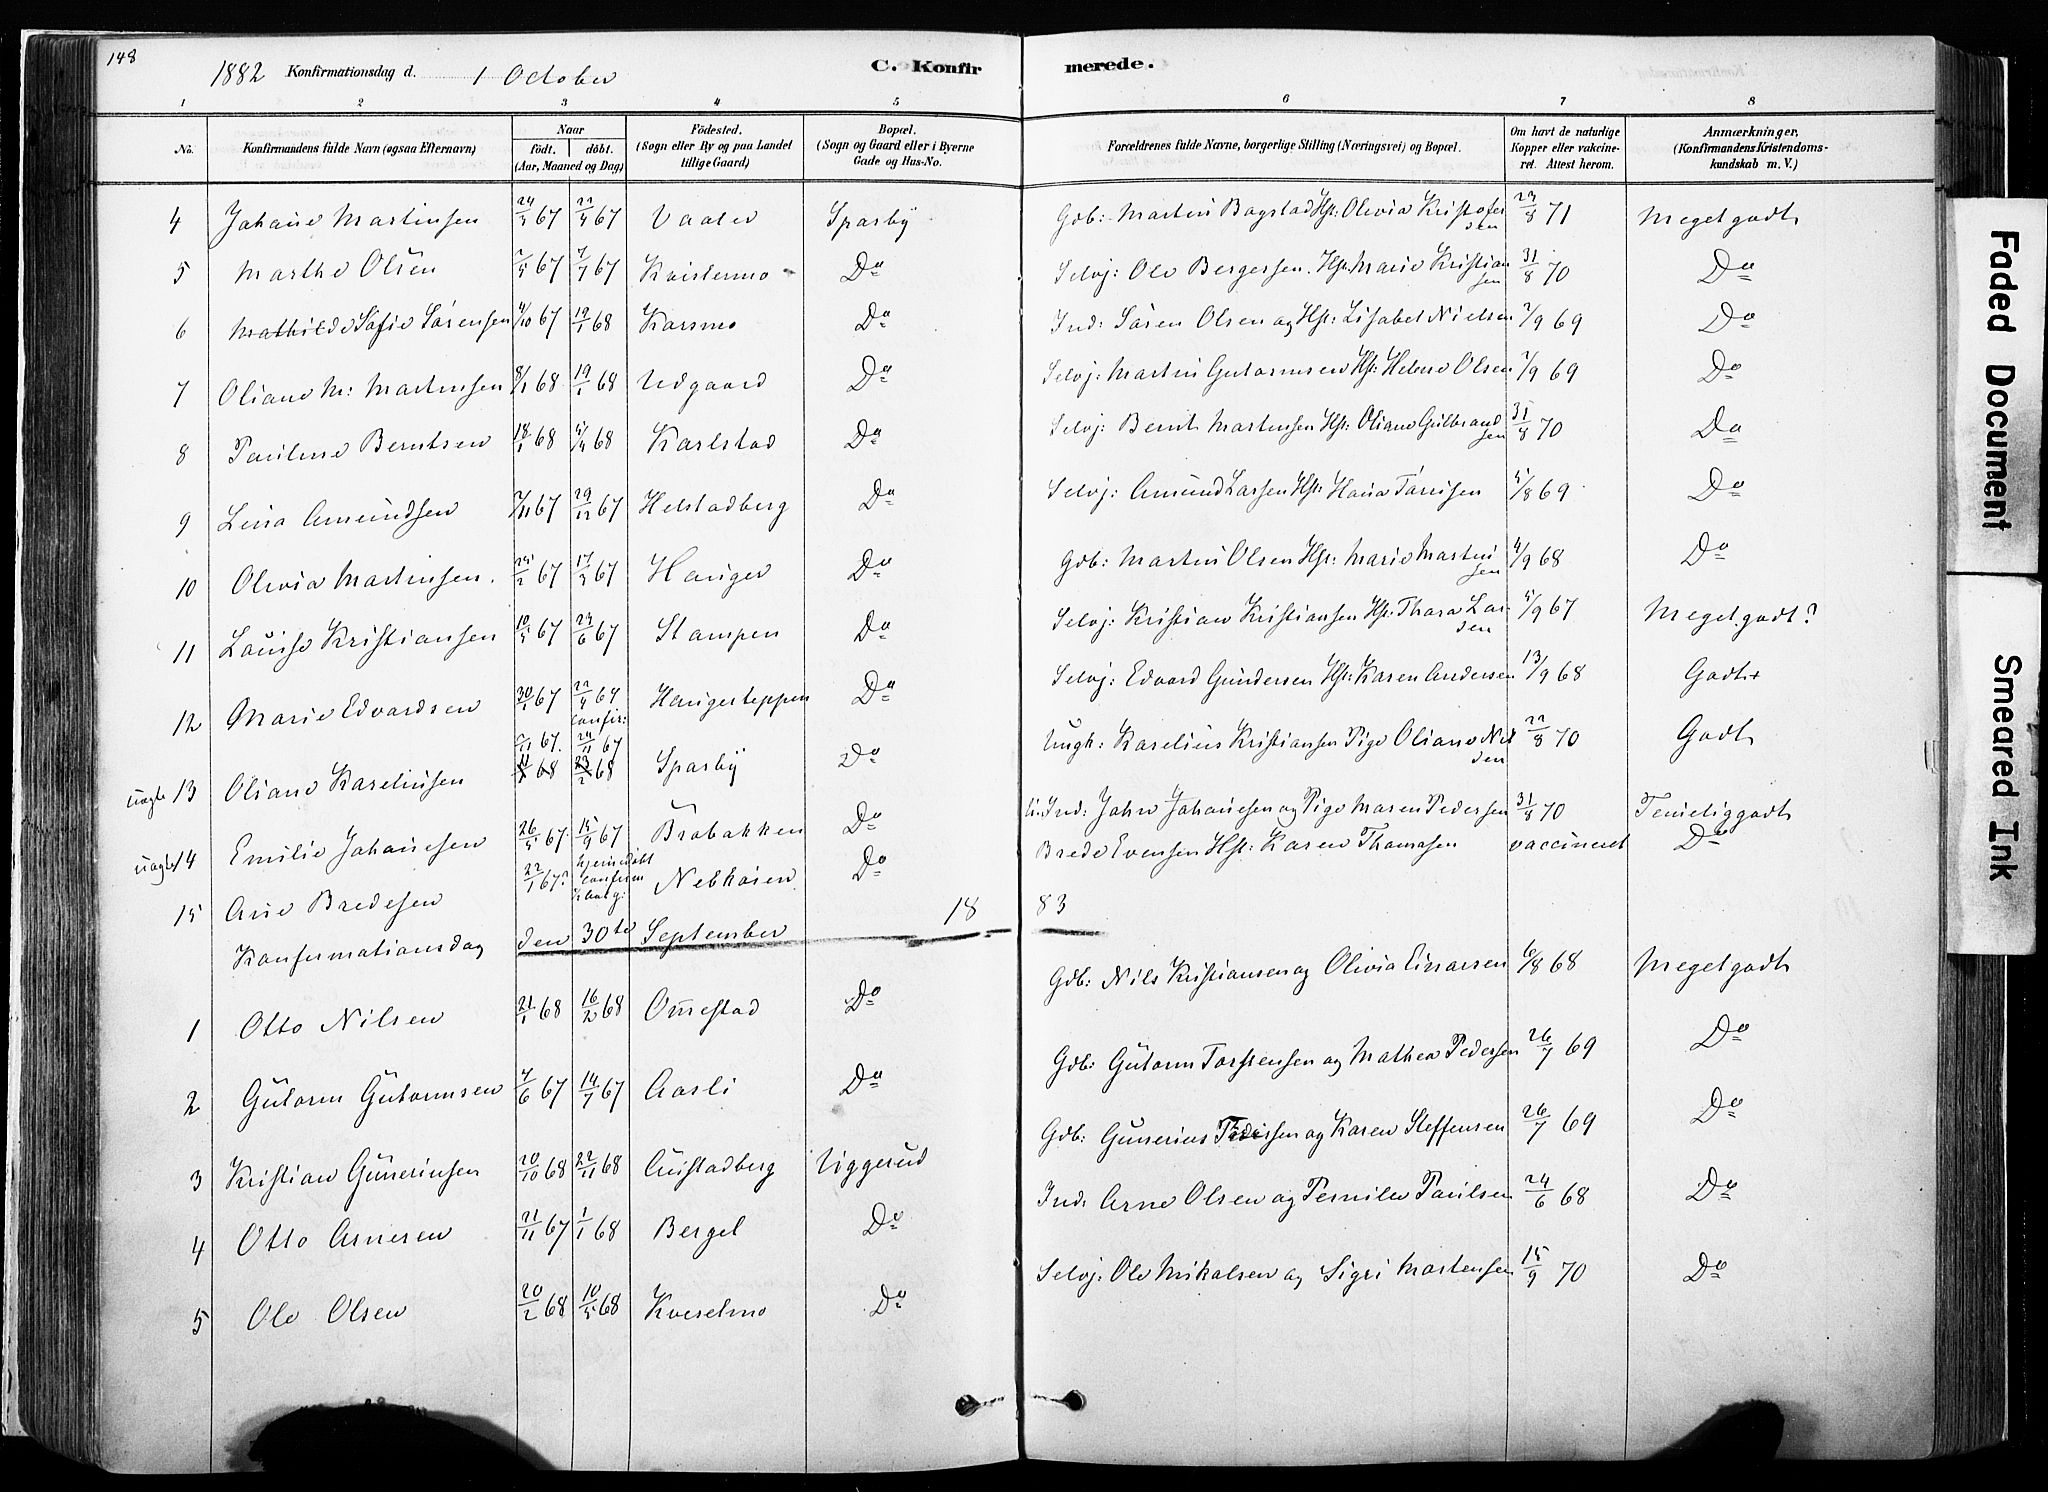 148
1882 Konfirmationsdag d. 1 October
C. Konfirmerede.
1 2 3 4 5 6 7 8
No.
Konfirmandens fulde Navn (ogsaa Efternavn)
Naar
født. døbt.
(Aar, Maaned og Dag)
Födested.
(Sogn eller By og paa Landet
tillige Gaard)
Bopæl.
(Sogn og Gaard eller i Byerne
Gade og Hus-No.
Forældrenes fulde Navne, borgerlige Stilling (Næringsvei) og Bopæl.
Om havt de naturlige
Kopper eller vakcine-
ret. Attest herom.
Anmærkninger,
(Konfirmandens Kristendoms-
kundskab m. V.)
4 Johane Martinsen 24/3 67 22/4 67 Vaaler Sparby Gdb: Martin Bogstad Hst: Olivia Kristofersen 23/8 71 Meget godt
5 Marthe Olsen 67 67 Kvistermo Do Selvj: Ole Bergersen Hst. Marie Kristiansen 31/8 70 Do
6 Mathilde Sofie Sørensen 4/10 67 19/1 68 Karsmo Do Ind: Søren Olsen og Hst: Lisabet Nielsen 2/9 69 Do
7 Oliane M: Martinsen 8/1 68 19/1 68 Udgaard Do Selvj: Martin Gutormsen Hst: Helene Olsen 2/9 69 Do
8 Pauline Berntsen 18/1 68 5/4 68 Karlstad Do Selvj: Bernt Martensen Hst: Oliane Gulbrandsen 31/8 70 Do
9 Lina Amundsen 7/11 67 29/12 67 Helstadberg Do Selvj: Amund Larsen Hst: Hana Tørrisen 5/8 69 Do
10 Olivia Martinsen. 25/2 67 17/3 67 Hauger Do Gdb: Martin Olsen Hst: Marie Martinsen 4/9 68 Do
11 Louise Kristiansen 10/5 67 23/6 67 Stampen Do Selvj: Kristian Kristiansen Hst: Thora Larsen 5/9 67 Meget godt?
12 Marie Edvardsen 30/1 67 22/4 67 Haugerteppen Do Selvj: Edvard Gundersen Hst: Karen Andersen 13/9 68 Godt+
confir:
67. 24/11 67
uægte 13 Oliane Kareliusen 68 23/2 68 Sparby Do Ungk: Karelius Kristiansen Pige Oliane Nilsen 22/8 70 Godt
uægte 14 Emilie Johanesen 26/5 67. 15/9 67 Brobakken Do Ind: John Johanesen og Pige Maren Pedersen 31/8 70 Temeliggodt
15 Ane Bredesen 22/1 67? hjemedøbt Nebkøien Do Brede Evensen Hst: Karen Thomasen vaccineret Do
Konfirmationsdag den 30te September 1883
1 Otto Nilsen 21/1 68 16/2 68 Omestad Do Gdb: Nils Kristiansen og Olivia Einarsen 6/8 68 Meget godt
2 Gutorm Gutormsen 7/6 67 14/7 67 Aasli Do Gdb: Gutorm Torstensen og Mathea Pedersen 26/7 69 Do
3 Kristian Guneriusen 20/10 68 22/11 68 Austadberg Viggerud Gdb: Gunerius Pedersen og Karen Steffensen 26/7 69 Do
4 Otto Arnesen 21/11 67 1/1 68 Berget Do Ind: Arne Olsen og Pernile Paulsen 24/6 68 Do
5 Ole Olsen 20/2 68 10/5 68 Kveselmo Do Selvj: Ole Mikalsen og Sigri Martensen 15/9 70 Do
Faded Document
Smeared Ink